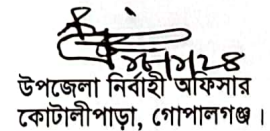 উপজেলা নির্বাহী অফিসার
কোটালীপাড়া, গোপালগঞ্জ।